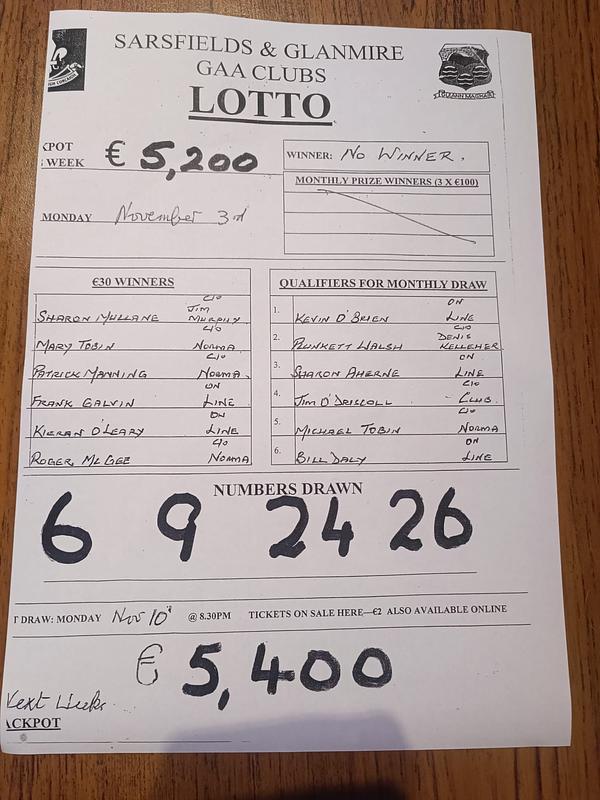 SARSFIELDS & GLANMIRE
GAA CLUBS
LOTTO
KPOT
WEEK € 5,200
WINNER: NO WINNER.
MONTHLY PRIZE WINNERS (3 X €100)
MONDAY November 3rd
€30 WINNERS
SHARON MULLANE C/O JIM MURPHY
MARY TOBIN C/O NORMA
PATRICK MANNING C/O NORMA
FRANK GALVIN ON LINE
KIERAN O'LEARY ON LINE
ROGER MCGEE C/O NORMA
QUALIFIERS FOR MONTHLY DRAW
1. KEVIN O'BRIEN ON LINE
2. PLUNKETT WALSH C/O DENIS KELLEHER
3. SHARON AHERNE ON LINE
4. JIM O'DRISCOLL C/O CLUB
5. MICHAEL TOBIN C/O NORMA
6. BILL DALY ON LINE
NUMBERS DRAWN
6 9 24 26
T DRAW: MONDAY Nov 10th @ 8.30PM TICKETS ON SALE HERE—€2 ALSO AVAILABLE ONLINE
€ 5,400
Next Weeks
ACKPOT